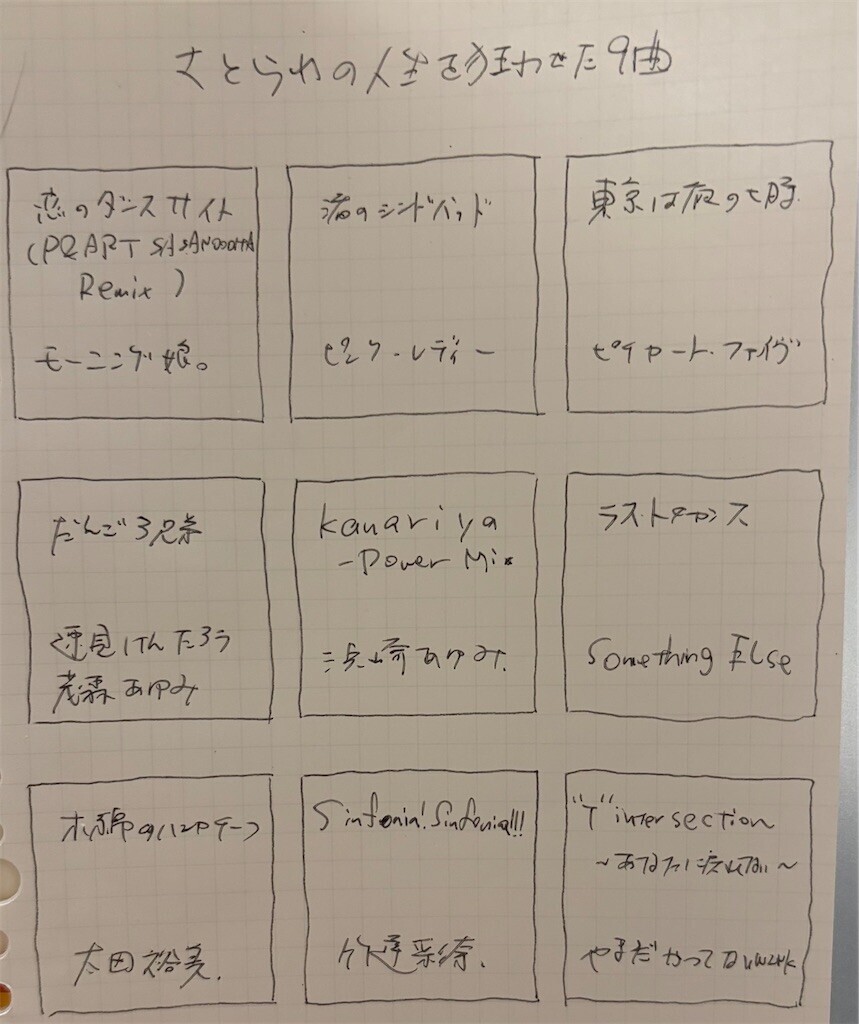 さとられの人生を狂わせた9曲
恋のダンスサイト
Remix )
モーニング娘。
渚のシンドバッド
ピンク・レディー
東京は夜の七時
ピチカート・ファイヴ
だんご3兄弟
速見けんたろう
茂森あゆみ
kanariya
-Power Mix
浜崎あゆみ
ラストチャンス
Something ELse
木綿のハンカチーフ
太田裕美.
Sinfonia! Sinfonia!!!
竹達彩奈.
"T"intersection
~あなたに戻れない~
やまだかつて